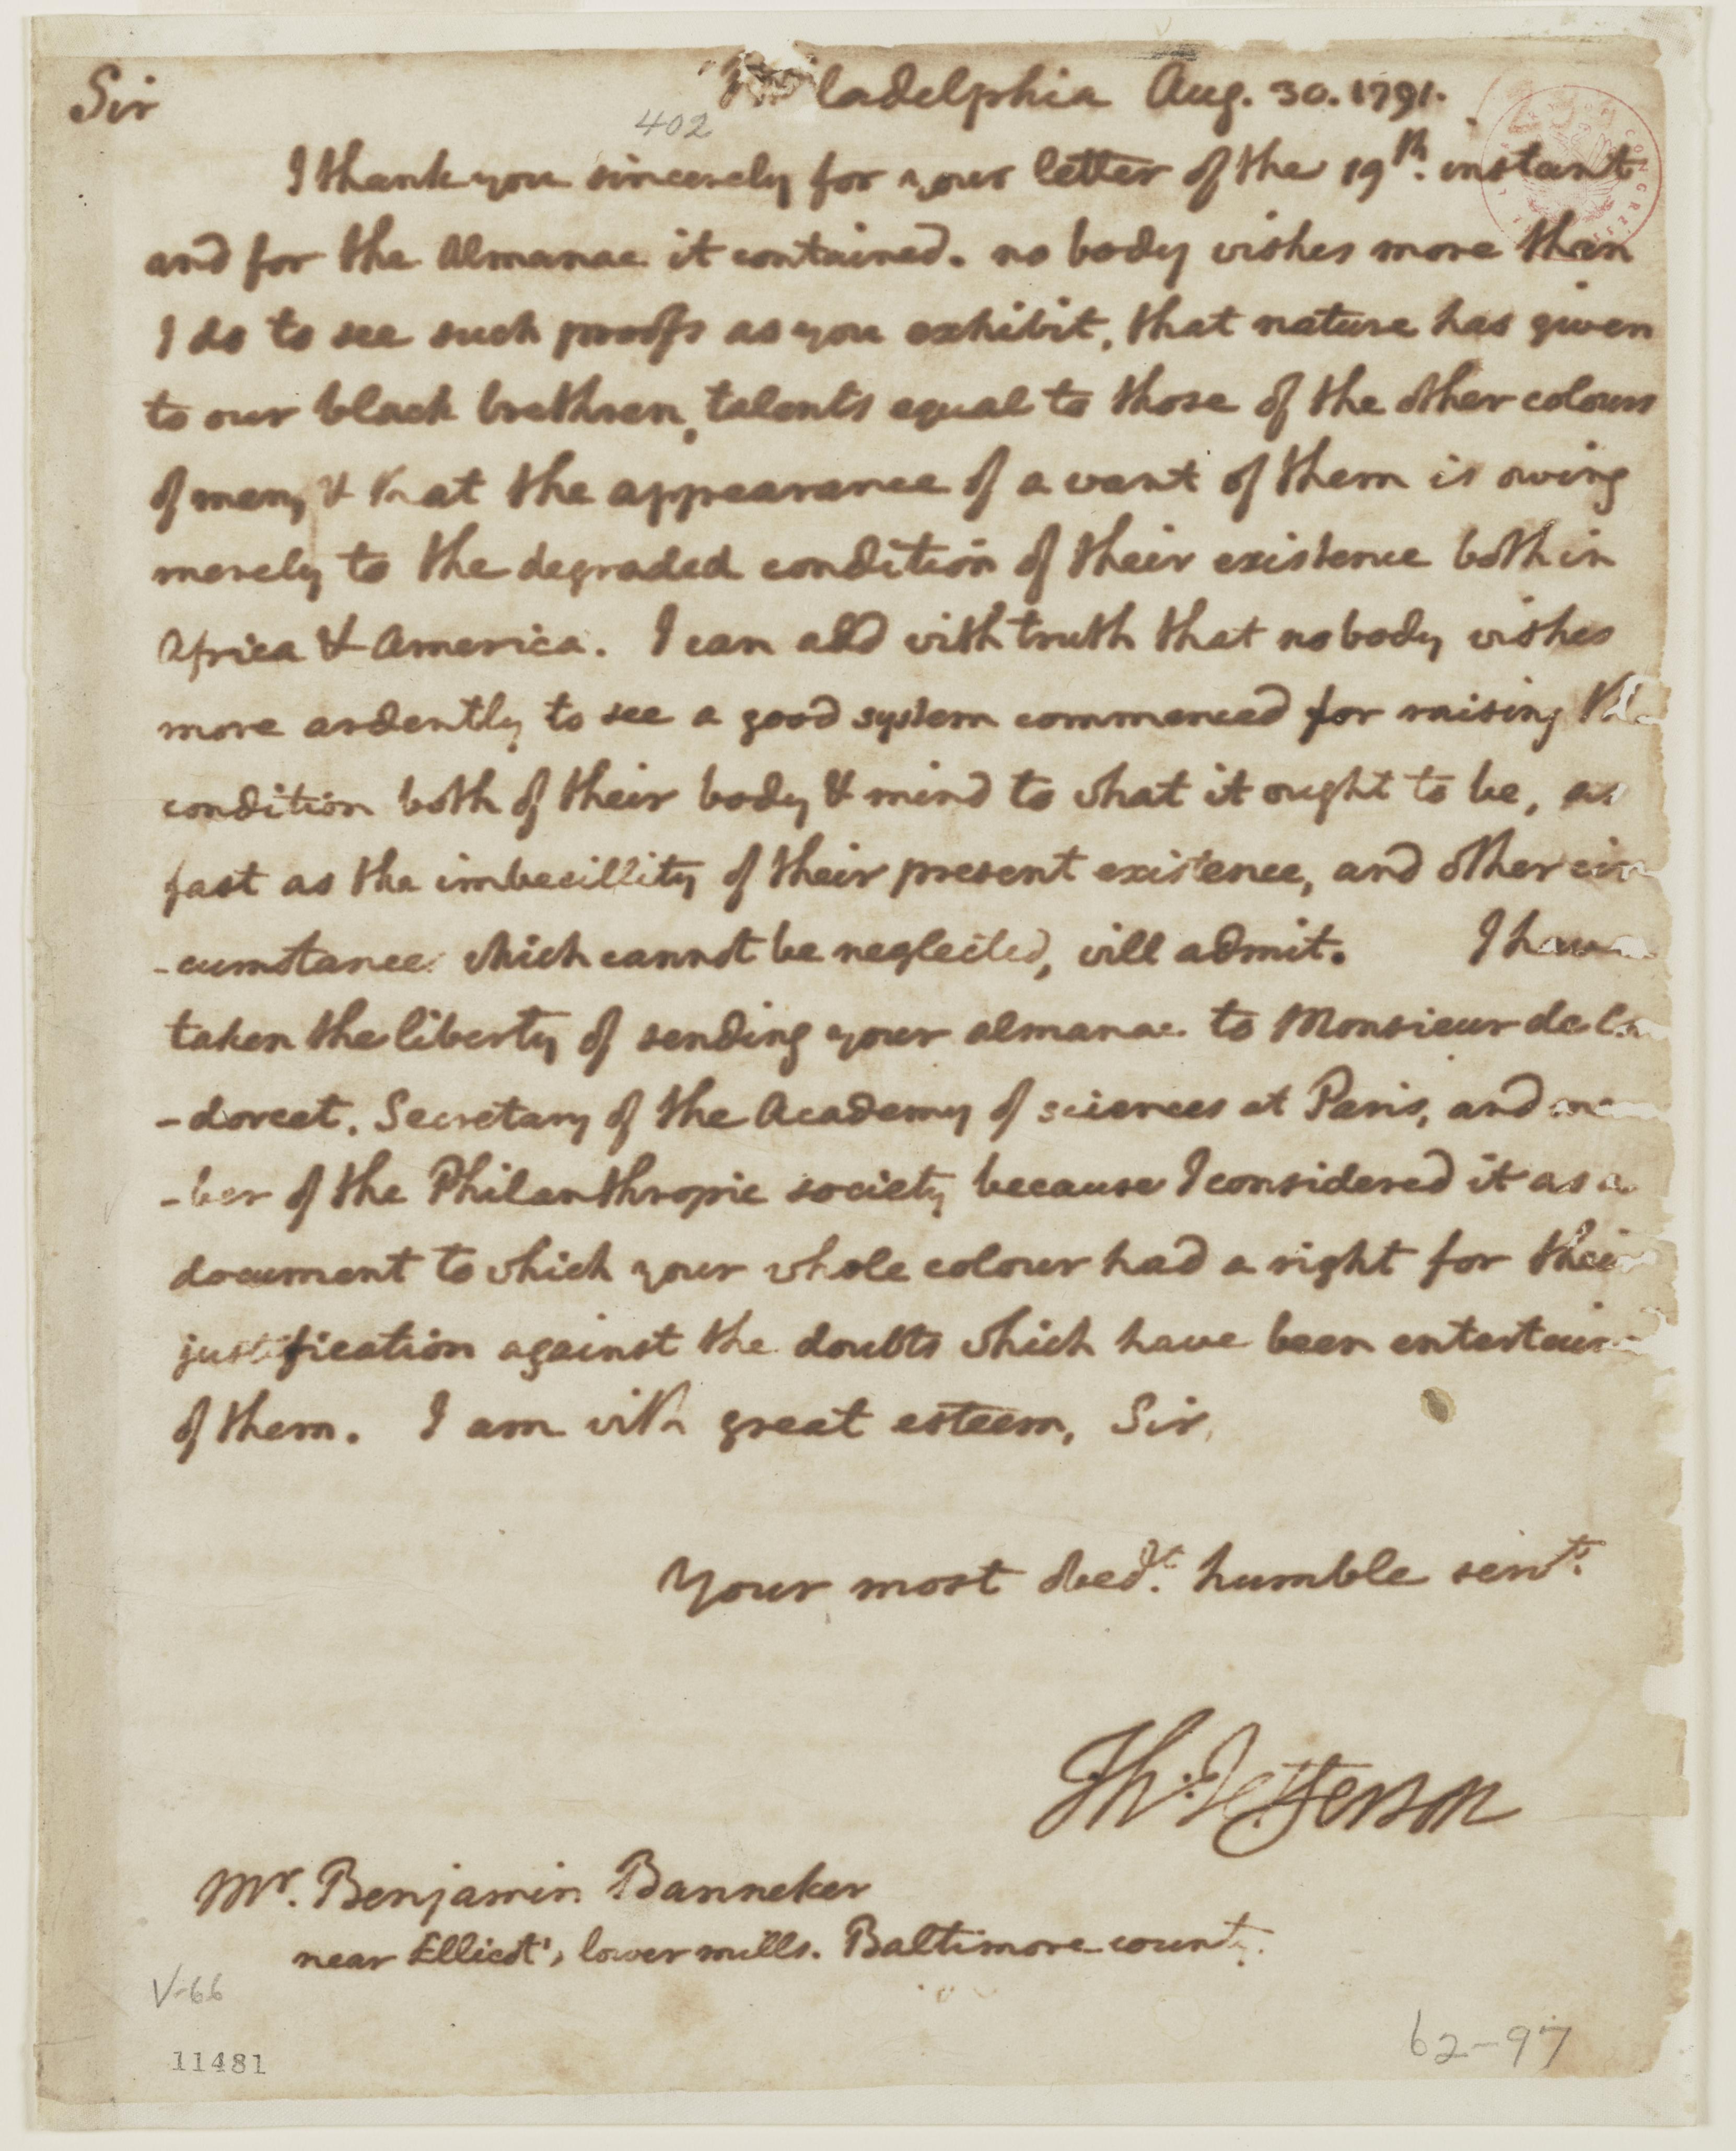 Sir
Philadelphia Aug. 30. 1791.
402
I thank you sincerely for your letter of the 19th. instant
and for the Almanac it contained. no body wishes more than
I do to see such proofs as you exhibit, that nature has given
to our black brethren, talents equal to those of the other colours
of men, & that the appearance of a want of them is owing
merely to the degraded condition of their existence both in
Africa & America. I can add with truth that no body wishes
more ardently to see a good system commenced for raising the
condition both of their body & mind to what it ought to be, as
fast as the imbecillity of their present existence, and other cir
-cumstance which cannot be neglected, will admit. I have
taken the liberty of sending your almanac to Monsieur de Con
-dorcet, Secretary of the Academy of sciences at Paris, and mem
-ber of the Philanthropic society because I considered it as a
document to which your whole colour had a right for their
justification against the doubts which have been entertain
of them. I am with great esteem, Sir,
Your most obedt. humble servt.
Th: Jefferson
Mr. Benjamin Banneker
near Ellicot's, lower mills. Baltimore county.
V-66
11481
62-97